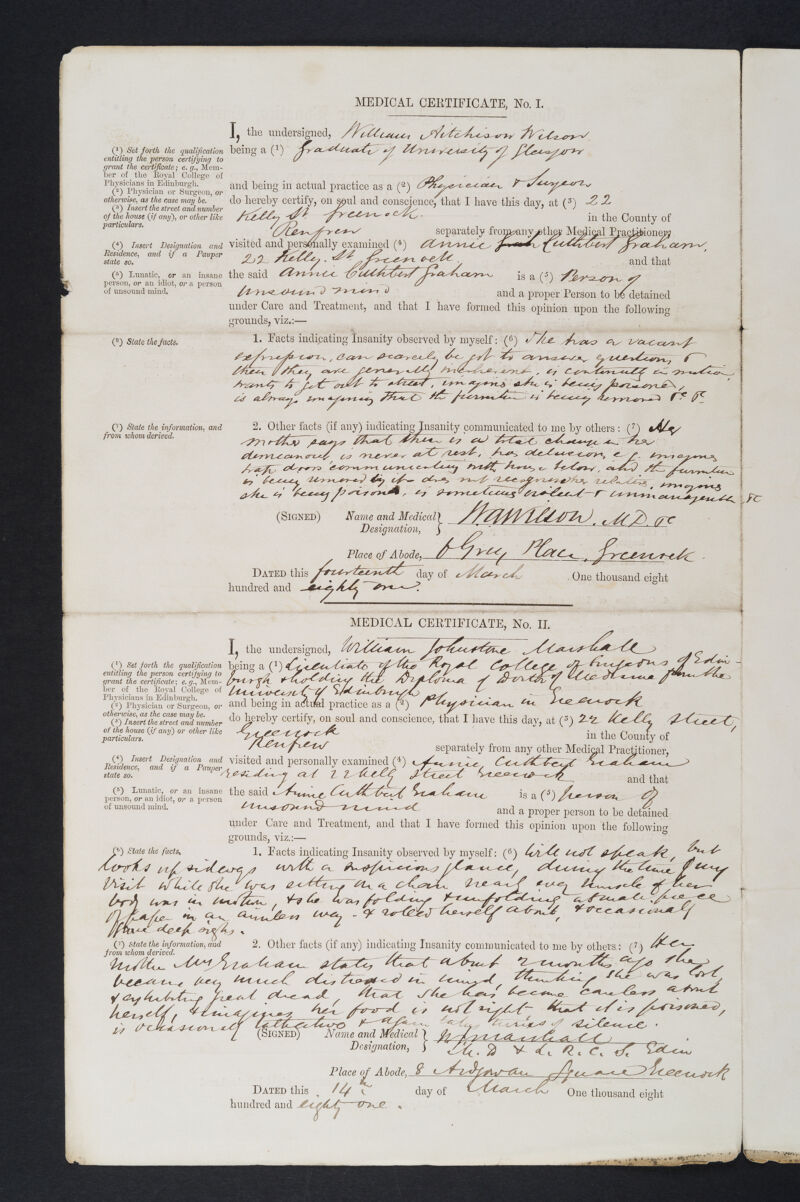 MEDICAL CERTIFICATE, No. I.
I, the undersigned, William Aitchison Wilson
(1) Set forth the qualification
entitling the person certifying to
grant the certificate; e. g., Mem-
ber of the Royal College of
Physicians in Edinburgh.
being a (1) Graduate of University of Glasgow
(2) Physician or Surgeon, or
otherwise, as the case may be.
and being in actual practice as a (2) Physician & Surgeon
(3) Insert the street and number
of the house (if any), or other like
particulars.
do hereby certify, on soul and conscience, that I have this day, at (3) 22
Kelly St Greenock. in the County of
Renfrew separately from any other Medical Practitioner,
(4) Insert Designation and
Residence, and if a Pauper
state so.
visited and personally examined (4) Annie Cuthbert Graham,
22 Kelly. St Greenock and that
(5) Lunatic, or an insane
person, or an idiot, or a person
of unsound mind.
the said Annie Cuthbert Graham is a (5) Person of
unsound mind and a proper Person to be detained
under Care and Treatment, and that I have formed this opinion upon the following
grounds, viz.:—
(6) State the facts.
1. Facts indicating Insanity observed by myself: (6) She has a vacant
expression, can scarcely be got to answer questions, &
then they are generally incoherent, is continually in motion,
wants to get out to street, imagines she is being poisoned,
is always imagining that the furniture is being removed &c &c
(7) State the information, and
from whom derived.
2. Other facts (if any) indicating Insanity communicated to me by others: (7) Her
mother says that there is a total change in her
demeanour, is never at rest, has delusions, e.g. imagines
trap doors communicating with house below, and the furniture
is being removed by it does not recognise her relatives, imagines
she is being poisoned, is sometimes violent & unmanageable &c
(SIGNED) Name and Medical Designation, W A Wilson, M.D. &c
Place of Abode, 6 Grey Place, Greenock.
DATED this fourteenth day of March One thousand eight
hundred and eighty one.
MEDICAL CERTIFICATE, No. II.
I, the undersigned, William Johnstone Marshall
(1) Set forth the qualification
entitling the person certifying to
grant the certificate; e. g., Mem-
ber of the Royal College of
Physicians in Edinburgh.
being a (1) Licentiate of the Royal College of Surgeons of Edin-
burgh & holding the Diploma of Doctor of Medicine from the
University of Edinburgh
(2) Physician or Surgeon, or
otherwise, as the case may be.
and being in actual practice as a (2) Physician in Greenock
(3) Insert the street and number
of the house (if any) or other like
particulars.
do hereby certify, on soul and conscience, that I have this day, at (3) 22 Kelly Street,
Greenock in the County of
Renfrew separately from any other Medical Practitioner,
(4) Insert Designation and
Residence, and if a Pauper
state so.
visited and personally examined (4) Annie Cuthbert Graham
residing at 22 Kelly Street Greenock and that
(5) Lunatic, or an insane
person, or an idiot, or a person
of unsound mind.
the said Annie Cuthbert Graham is a (5) person of
unsound mind and a proper person to be detained
under Care and Treatment, and that I have formed this opinion upon the following
grounds, viz.:—
(6) State the facts,
1. Facts indicating Insanity observed by myself: (6) Will not speak, but
looks up sideways with a suspicious glance, during the time of my
visit while she was sitting on a chair nearly every muscle of her
body was in motion, & she was folding & unfolding a small piece
of paper in an aimless way - & rolled herself about, & occasionally
gave deep sighs.
(7) State the information, and
from whom derived.
2. Other facts (if any) indicating Insanity communicated to me by others: (7) Her
mother Mrs Graham states that about 2 months ago she
became very much distressed in mind, thinking she was lost,
& exhibiting great dread, that she has become careless about
herself, & imagines her food is not right, that it is poisoned,
is occasionally talkative & again takes turns of silence.
(SIGNED) Name and Medical Designation, W J Marshall
M. D & L. R. C. S. Edin
Place of Abode, 8 Ardgowan Square Greenock
DATED this 14th day of March One thousand eight
hundred and eighty one.